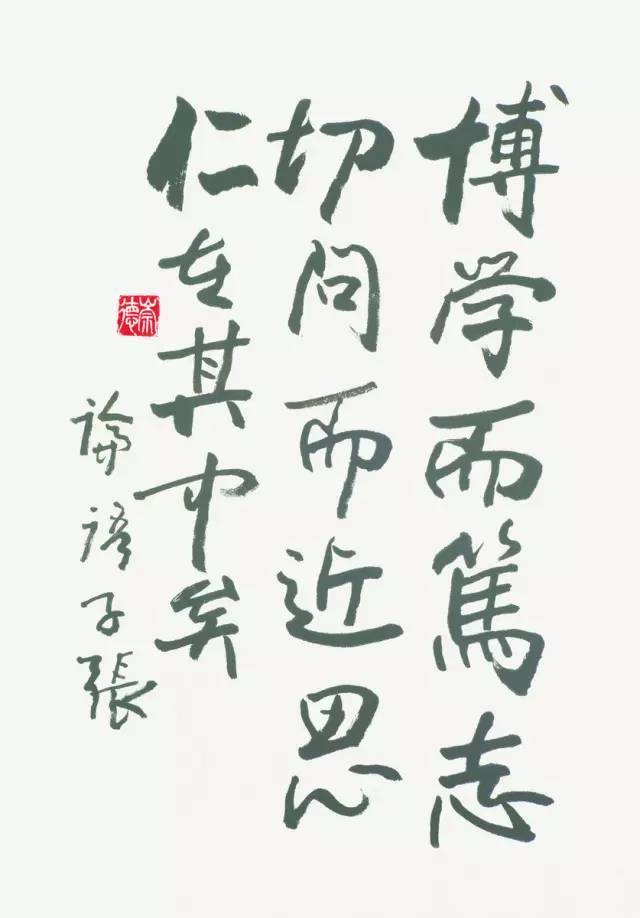 博学而篤志
切问而近思
仁在其中矣
論語子張
崇德